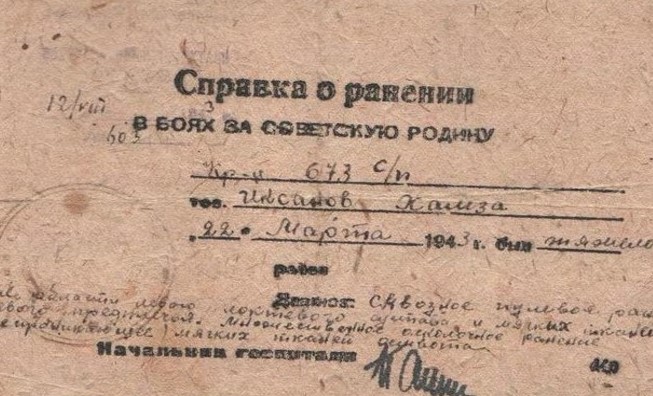 12/VIII
603
Справка о ранении
В БОЯХ ЗА СОВЕТСКУЮ РОДИНУ
Кр-ц 673 с/п
тов. Ихсанов Хамза
"22" Марта 1943 г. был тяжело
ранен
Диагноз: Сквозное пулевое ран
области левого локтевого сустава и мягких ткане
вого предплечья. Множественное осколочное ранение
мягких тканей живота
Начальник госпиталя